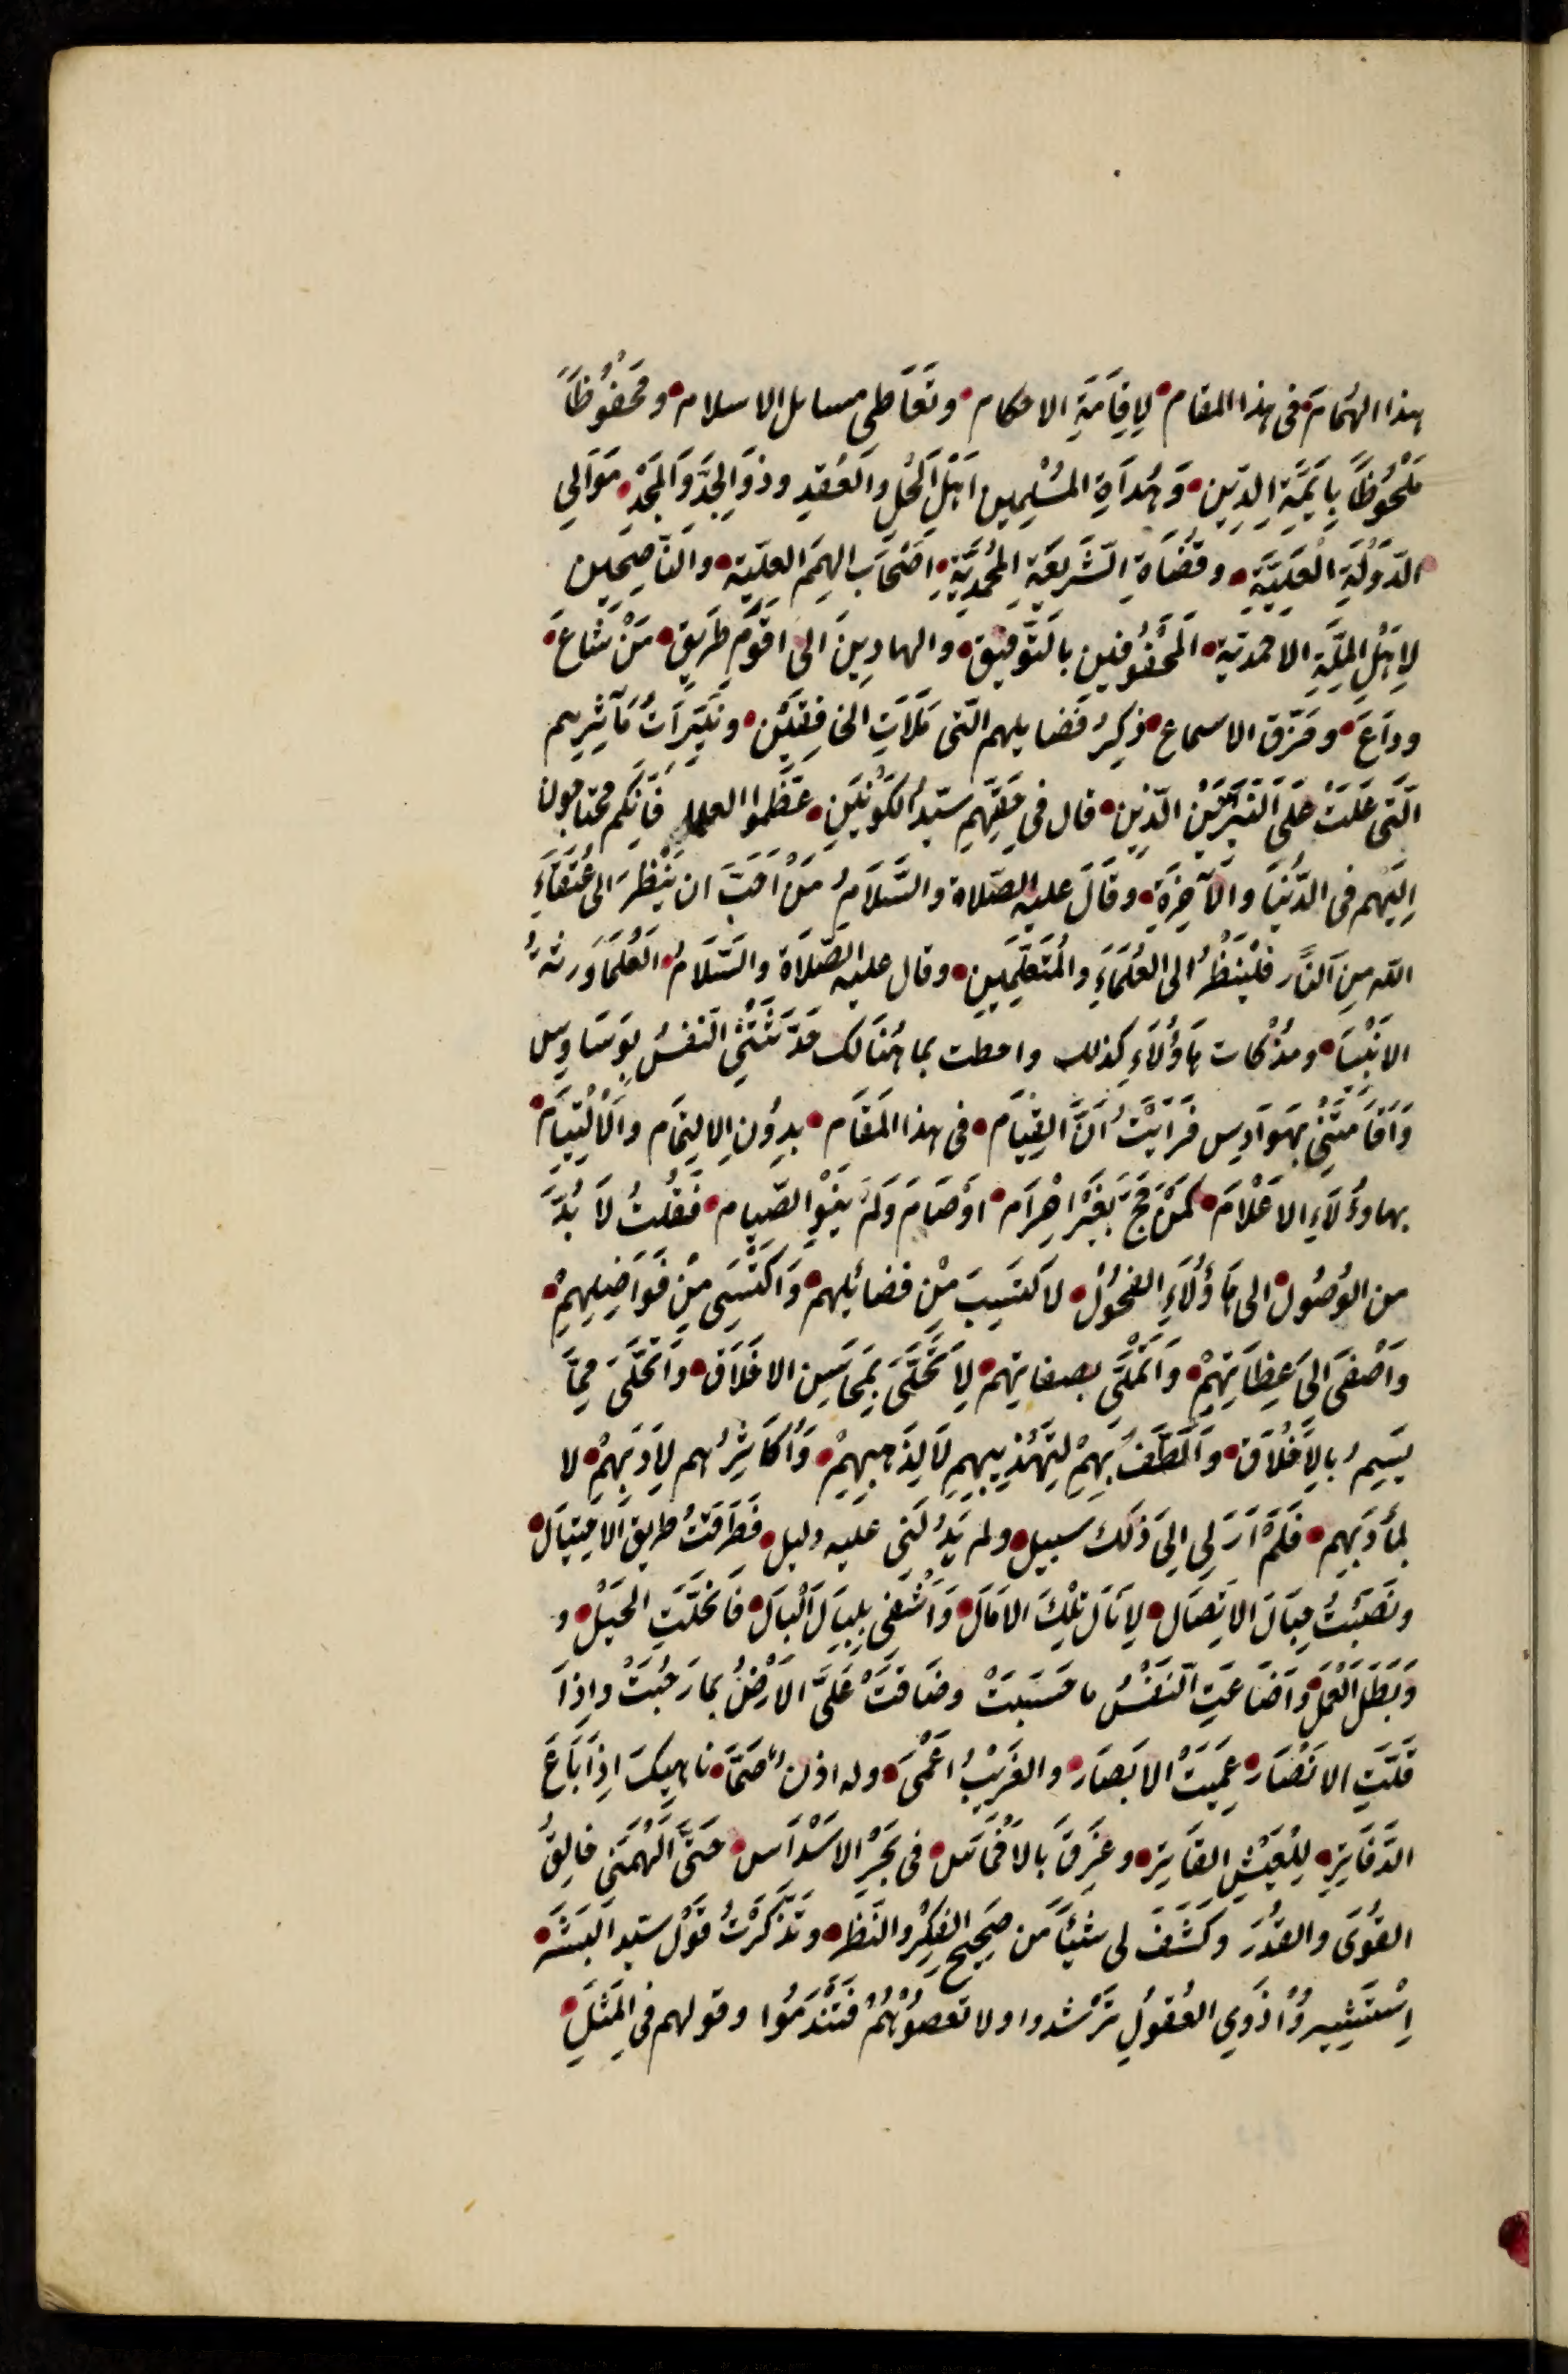 هذا الهُمَامَ فى هذا المقام لِاِقَامَةِ الاحكام وتَعَاطى مسايل الاسلام ومَحْفُوظاً
مَلْحُوظاً بِاَيِمَّةِ الدِّيِن وَهُدَاةِ المُسْلِمِين اَهْلِ اَلحَلِّ وَالعَقْدِ وذَوِ الجِدِّ وَالمَجْدِ مَوَالِي
الدَّوْلَةِ الْعَلِيَّةِ وقُضَاةِ الشَّرِيعَةِ المُحَمَّدِيَّةِ اَصْحَابِ الهِمَمِ العِلِيّة والنَّاصِحين
لِاَهْلِ المِلَّةِ الاحمديّة اَلمَحْفُوفين بالتَّوفِيق والهادِينَ الى اقوَمِ طَرِيقٍ مَنْ شَاعَ
وذَاعَ وخَرَق الاسماع ذِكِرُ فضايلهم التّى مَلَاَتِ الخافِقَيْن ونَيِّرَاتُ مَآثِرِهم
الَّتى عَلَتْ عَلَى النَّيِّرَيْن الّذين قال فى حَقِّهِم سَيّدُ الكَوْنَيْن عَظِّموا العلما فَاِنّكم محتاجون
اِلَيْهم فى الدُّنْيَا والآخِرَةِ وَقَالَ عليه الصّلاة والسَّلَامُ مَنْ اَحَبَّ ان يَنْظُرَ الى عُتَقَاءِ
الله مِنَ النَّار فلْيَنظُرْ الى العُلَمَاءِ والمُتَعَلِّمِين وقال عليه الصّلَاة والسّلَامُ العُلَمَا وَرَثَةُ
الانْبِيَا ومُذْ كانت هَاؤُلَاءِ كذلك واحطت بما هُنَالك حَدَّثَتْنِي النّفسُ بِوَسَاوِس
وَاَقَامَتْنِي بهَوَادِس فَرَايْتُ اَنَّ القِيَام فى هذا المقَام بِدوُنِ الِالتِحَام والالْتِيَامِ
بهاوءُلَاءِ الاعْلَام كَمَنْ حَجَّ بغَيْرِ اِحْرَام اوْ صَامَ وَلَمْ يَنْوِ الصِّيام فَقُلتُ لَا بُدَّ
من الوُصُول الى هَاؤُلَاءِ الفحُول لاكتَسِبَ مِنْ فضائلهم وَاكتَسِى مِنْ فَوَاضِلِهِمْ
واَصْغَى اِلَى عِظَاتِهِمْ وَاَتَمَلَّى بصفاتهم لِاَتَحَلَّى بِمَحَاسِن الاخلَاق وَاَتَخَلَّى مِمَّا
يَسِمُ بالِاخْلَاق وَاَلْطَفُ بِهِمْ لِتَهْذِيبِهِم لَا لِذَهَبِهِمْ وَاُكَاثِرُهم لِاَدَبِهِمْ لا
لِمأدَبِهم فَلَمْ اَرَ لِي الى ذَلك سَبيل ولم يَدُلَّنِى عليه دليل فَطَرَقتُ طريق الاحتِيَال
ونَصَبْتُ حِبَالَ الاتِصَال لِاَنَال تِلْكَ الامَال وَاَشْفِى بِلبَالَ اَلبَال فَاَنحلَّتِ الحَبْل و
وَبَطَل العَمل واَضَاعَتِ النَّفسُ ما حَسِبَتْ وضَاقَتْ عَلَىَّ الارْضُ بمَا رَحُبَتْ واِذَا
قَلَّتِ الانْصَار عَمِيَتْ الابصَار والغَرِيْبُ اَعْمَى وله اذن صَمَّا ناهِيكَ اِذَا بَاعَ
الدَّفَاتِر لِلْعَيْشِ الفَاتِر وغَرِقَ بالاَخْمَاس فى بَحْرِ الاسْدَاس حَتَّى اَلْهَمَنِى خالِقُ
القُوَى والقُدَر وكَشَفَ لى شيئاً من صَحِيحِ الفِكْرِ والنَّظَر وتَذَكَّرْتُ قَوْلَ سَيّد البَشَر
اِسْتَشِيروُا ذَوِي العُقُولِ تَرْشدوا ولا تعصُوْهُمْ فَتَنْدَمُوا وقولهم فى المَثَلِ